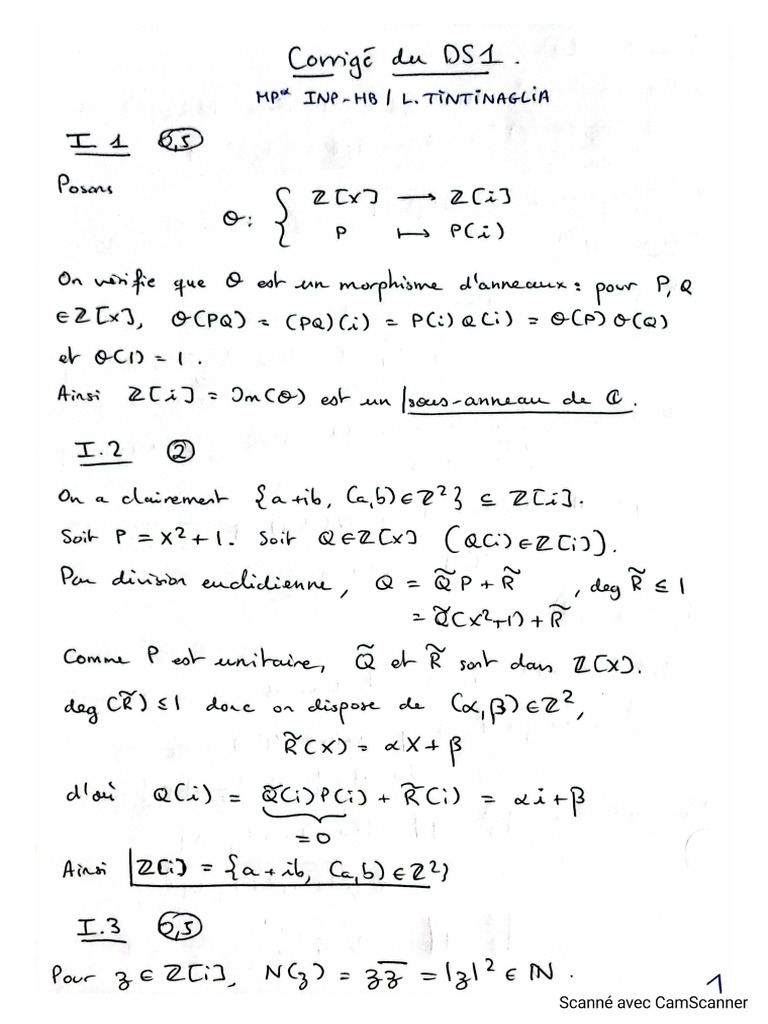 Corrigé du DS1.
MPα INP-HB / L. TINTINAGLIA
I 1 (0,5)
Posons
θ: { Z[X] → Z[i]
P ↦ P(i)
On vérifie que θ est un morphisme d'anneaux : pour P, Q
∈ Z[X], θ(PQ) = (PQ)(i) = P(i)Q(i) = θ(P)θ(Q)
et θ(1) = 1.
Ainsi Z[i] = Im(θ) est un sous-anneau de ℂ.
I.2 (2)
On a clairement {a+ib, (a,b)∈Z²} ⊆ Z[i].
Soit P = X²+1. Soit Q∈Z[X] (Q(i)∈Z[i]).
Par division euclidienne, Q = Q̃P + R̃ , deg R̃ ≤ 1
= Q̃(X²+1) + R̃
Comme P est unitaire, Q̃ et R̃ sont dans Z[X].
deg(R̃) ≤ 1 donc on dispose de (α,β)∈Z²,
R̃(X) = αX+β
d'où Q(i) = Q̃(i)P(i) + R̃(i) = αi+β
=0
Ainsi Z[i] = {a+ib, (a,b)∈Z²}
I.3 (0,5)
Pour z ∈ Z[i], N(z) = zz̅ = |z|² ∈ ℕ.
1
Scanné avec CamScanner